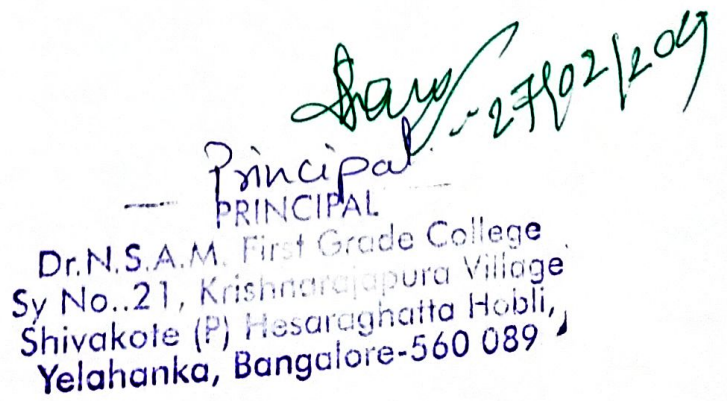 27/02/204
Principal
PRINCIPAL
Dr.N.S.A.M. First Grade College
Sy No..21, Krishnarajapura Village
Shivakote (P) Hesaraghatta Hobli,
Yelahanka, Bangalore-560 089